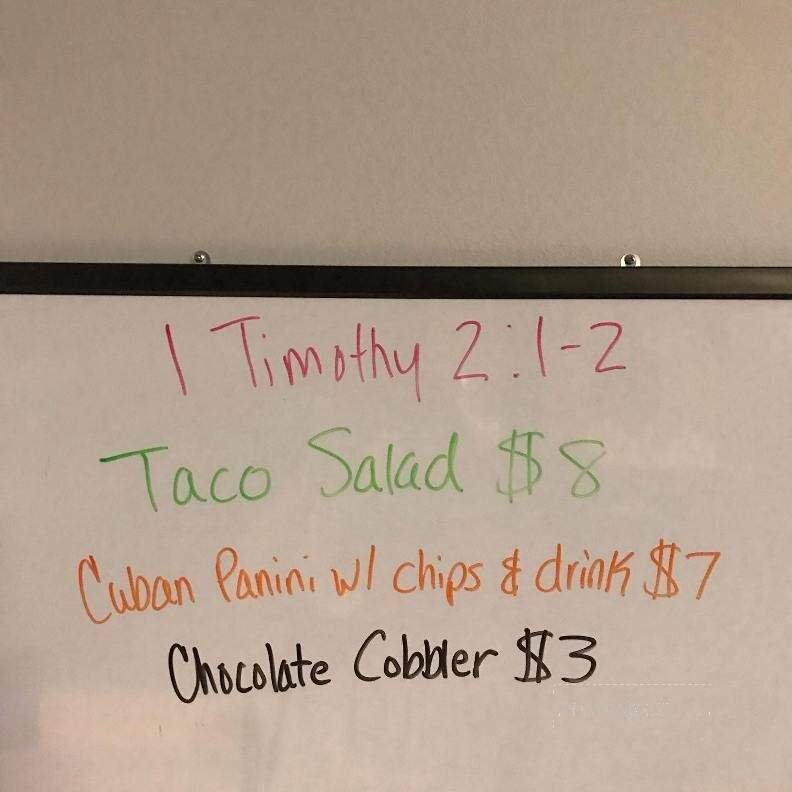 1 Timothy 2:1-2
Taco Salad $8
Cuban Panini w/ chips & drink $7
Chocolate Cobbler $3